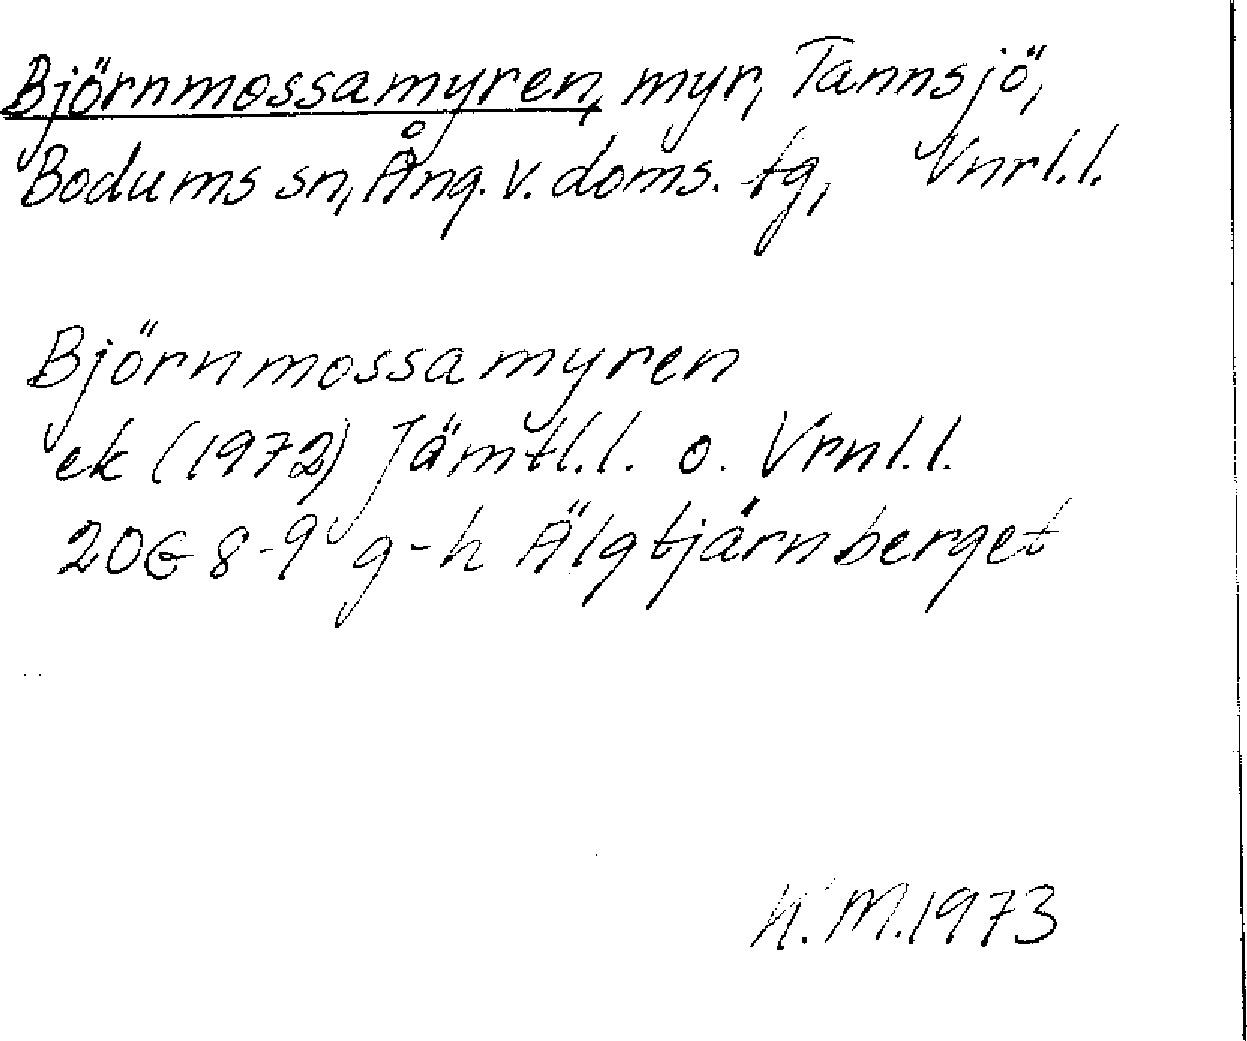 Björnmossamyren, myr, Tannsjö,
Bodums sn, Ång. v. doms. tg, Vnrl.l.
Björnmossamyren
ek (1972) Jämtl.l. o. Vrnl.l.
20G 8-9 g-h Älgtjärnberget
K.M.1973